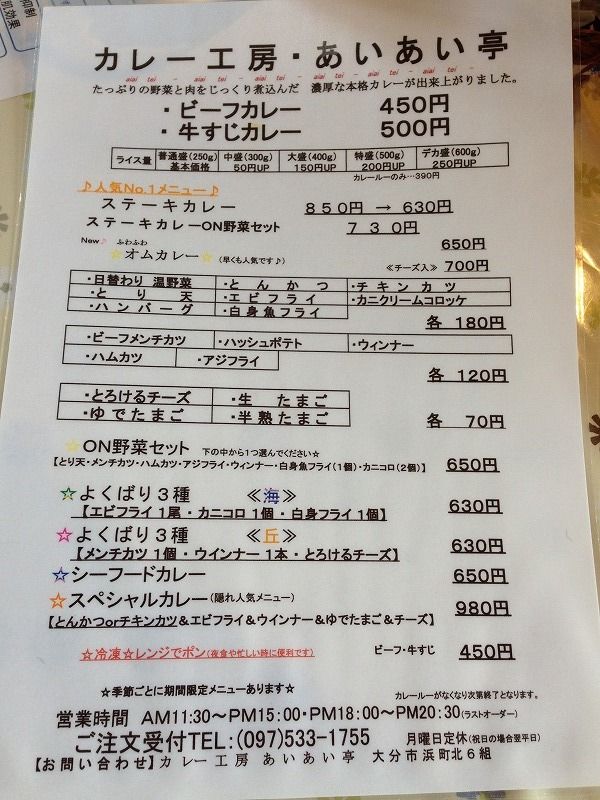 抑制
効果
カレー工房・あいあい亭
aiai tei - aiai tei - aiai tei - aiai tei - aiai tei - aiai tei - aiai tei
たっぷりの野菜と肉をじっくり煮込んだ 濃厚な本格カレーが出来上がりました。
・ビーフカレー 450円
・牛すじカレー 500円
ライス量 普通盛(250g) 基本価格 中盛(300g) 50円UP 大盛(400g) 150円UP 特盛(500g) 200円UP デカ盛(600g) 250円UP
カレールーのみ…390円
♪人気No.1メニュー♪
ステーキカレー 850円 → 630円
ステーキカレーON野菜セット 730円
New♪ ふわふわ 650円
☆オムカレー☆ (早くも人気です♪) ≪チーズ入≫ 700円
・日替わり 温野菜 ・とんかつ ・チキンカツ
・とり天 ・エビフライ ・カニクリームコロッケ
・ハンバーグ ・白身魚フライ
各 180円
・ビーフメンチカツ ・ハッシュポテト ・ウィンナー
・ハムカツ ・アジフライ
各 120円
・とろけるチーズ ・生 たまご
・ゆでたまご ・半熟たまご 各 70円
☆ON野菜セット 下の中から1つ選んでください☆
【とり天・メンチカツ・ハムカツ・アジフライ・ウィンナー・白身魚フライ(1個)・カニコロ(2個)】 650円
☆よくばり3種 ≪海≫
【エビフライ 1尾 ・ カニコロ 1個 ・ 白身フライ 1個】 630円
☆よくばり3種 ≪丘≫
【メンチカツ 1個 ・ ウインナー 1本 ・ とろけるチーズ】 630円
☆シーフードカレー 650円
☆スペシャルカレー(隠れ人気メニュー) 980円
【とんかつorチキンカツ&エビフライ&ウインナー&ゆでたまご&チーズ】
☆冷凍☆レンジでポン(夜食や忙しい時に便利です) ビーフ・牛すじ 450円
☆季節ごとに期間限定メニューあります☆ カレールーがなくなり次第終了となります。
営業時間 AM11:30～PM15:00・PM18:00～PM20:30(ラストオーダー)
ご注文受付TEL:(097)533-1755 月曜日定休(祝日の場合翌平日)
【お問い合わせ】カレー工房 あいあい亭 大分市浜町北6組